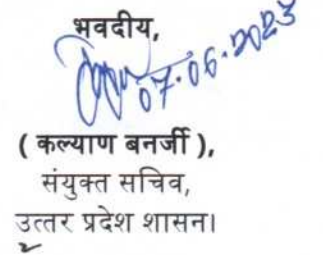 भवदीय,
07.06.2023
( कल्याण बनर्जी ),
संयुक्त सचिव,
उत्तर प्रदेश शासन।